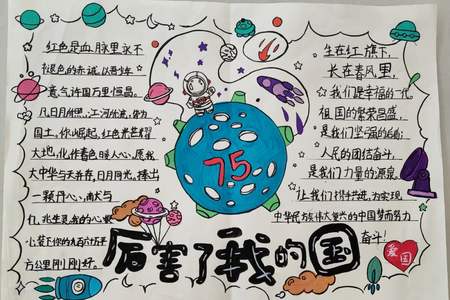 红色是血脉里永不
褪色的赤诚,以吾少年
意气许国万里恒昌。
凡日月所照,江河所流,皆为
国土,你崛起,红色光芒耀
大地,化作春色暖人心,愿我
大中华与天并存,日月同光,捧出
一颗丹心,献
礼
小 你的九百六十万
方公里刚刚好。
75
生在红旗下,
长在春风里,
我们是幸福的一代
祖国的繁荣昌盛
是我们坚强的
人民的团结奋斗,
是我们力量的源泉
让我们携手共进,为实现
中华民族伟大复兴的中国梦而努力
奋斗!
爱国
厉害了我的国